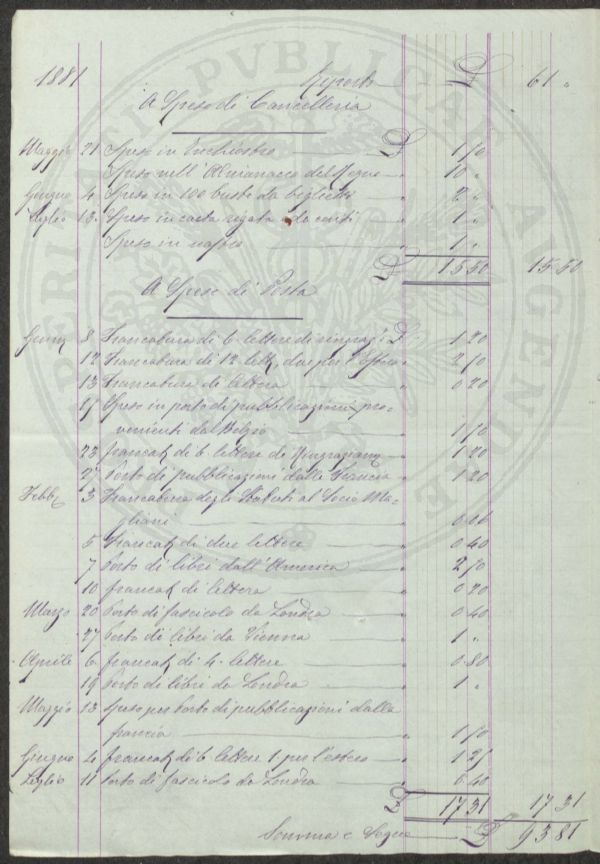 1881 Riporto £ 61 "
A Spese di Cancelleria
Maggio 21 Speso in Inchiostro £ 1 50
Speso nell'Almanacco del Regno " 10 "
Giugno 4 Speso in 100 buste da biglietti " 2 "
Luglio 13 Speso in carta rigata da conti " 1 "
Speso in nastro " 1 "
£ 15 50 15 50
A Spese di Posta
8 Francatura di 6 lettere di £ 1 20
12 Francatura di 12 lett. due per l'Estero " 2 50
13 Francatura di lettera " 0 20
15 Speso in porto di pubblicazioni pro-
venienti dal Belgio " 1 50
23 francat. di 6 lettere di " 1 20
27 Porto di pubblicazioni dalla Francia " 1 20
Febb. 3 Francatura degli Statuti al Socio Ma-
gliani " 0 06
5 Francat. di due lettere " 0 40
7 Porto di libri dall'America " 2 50
10 francat. di lettera " 0 20
Marzo 20 Porto di fascicolo da Londra " 0 40
27 Porto di libri da Vienna " 1 "
Aprile 6 francat. di 4 lettere " 0 80
19 Porto di libri da Londra " 1 "
Maggio 13 Speso per Porto di pubblicazioni dalla
francia " 1 50
Giugno 4 francat. di 6 lettere 1 per l'estero " 1 25
Luglio 11 Porto di fascicolo da Londra " 0 40
£ 17 31 17 31
Somma e Segue £ 93 81